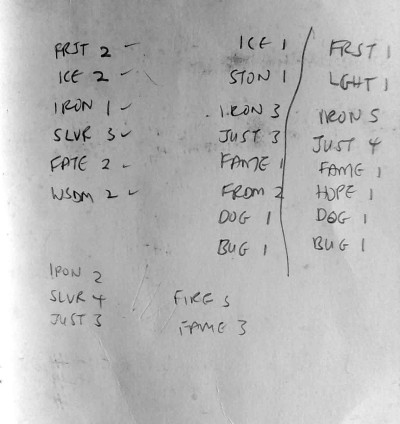 FRST 2 ✓
ICE 2 ✓
IRON 1 ✓
SLVR 3 ✓
FATE 2 ✓
WSDM 2 ✓
IRON 2
SLVR 4
JUST 3
ICE 1
STON 1
IRON 3
JUST 3
FAME 1
FRDM 2
DOG 1
BUG 1
FIRE 5
FAME 3
FRST 1
LGHT 1
IRON 5
JUST 4
FAME 1
HOPE 1
DOG 1
BUG 1